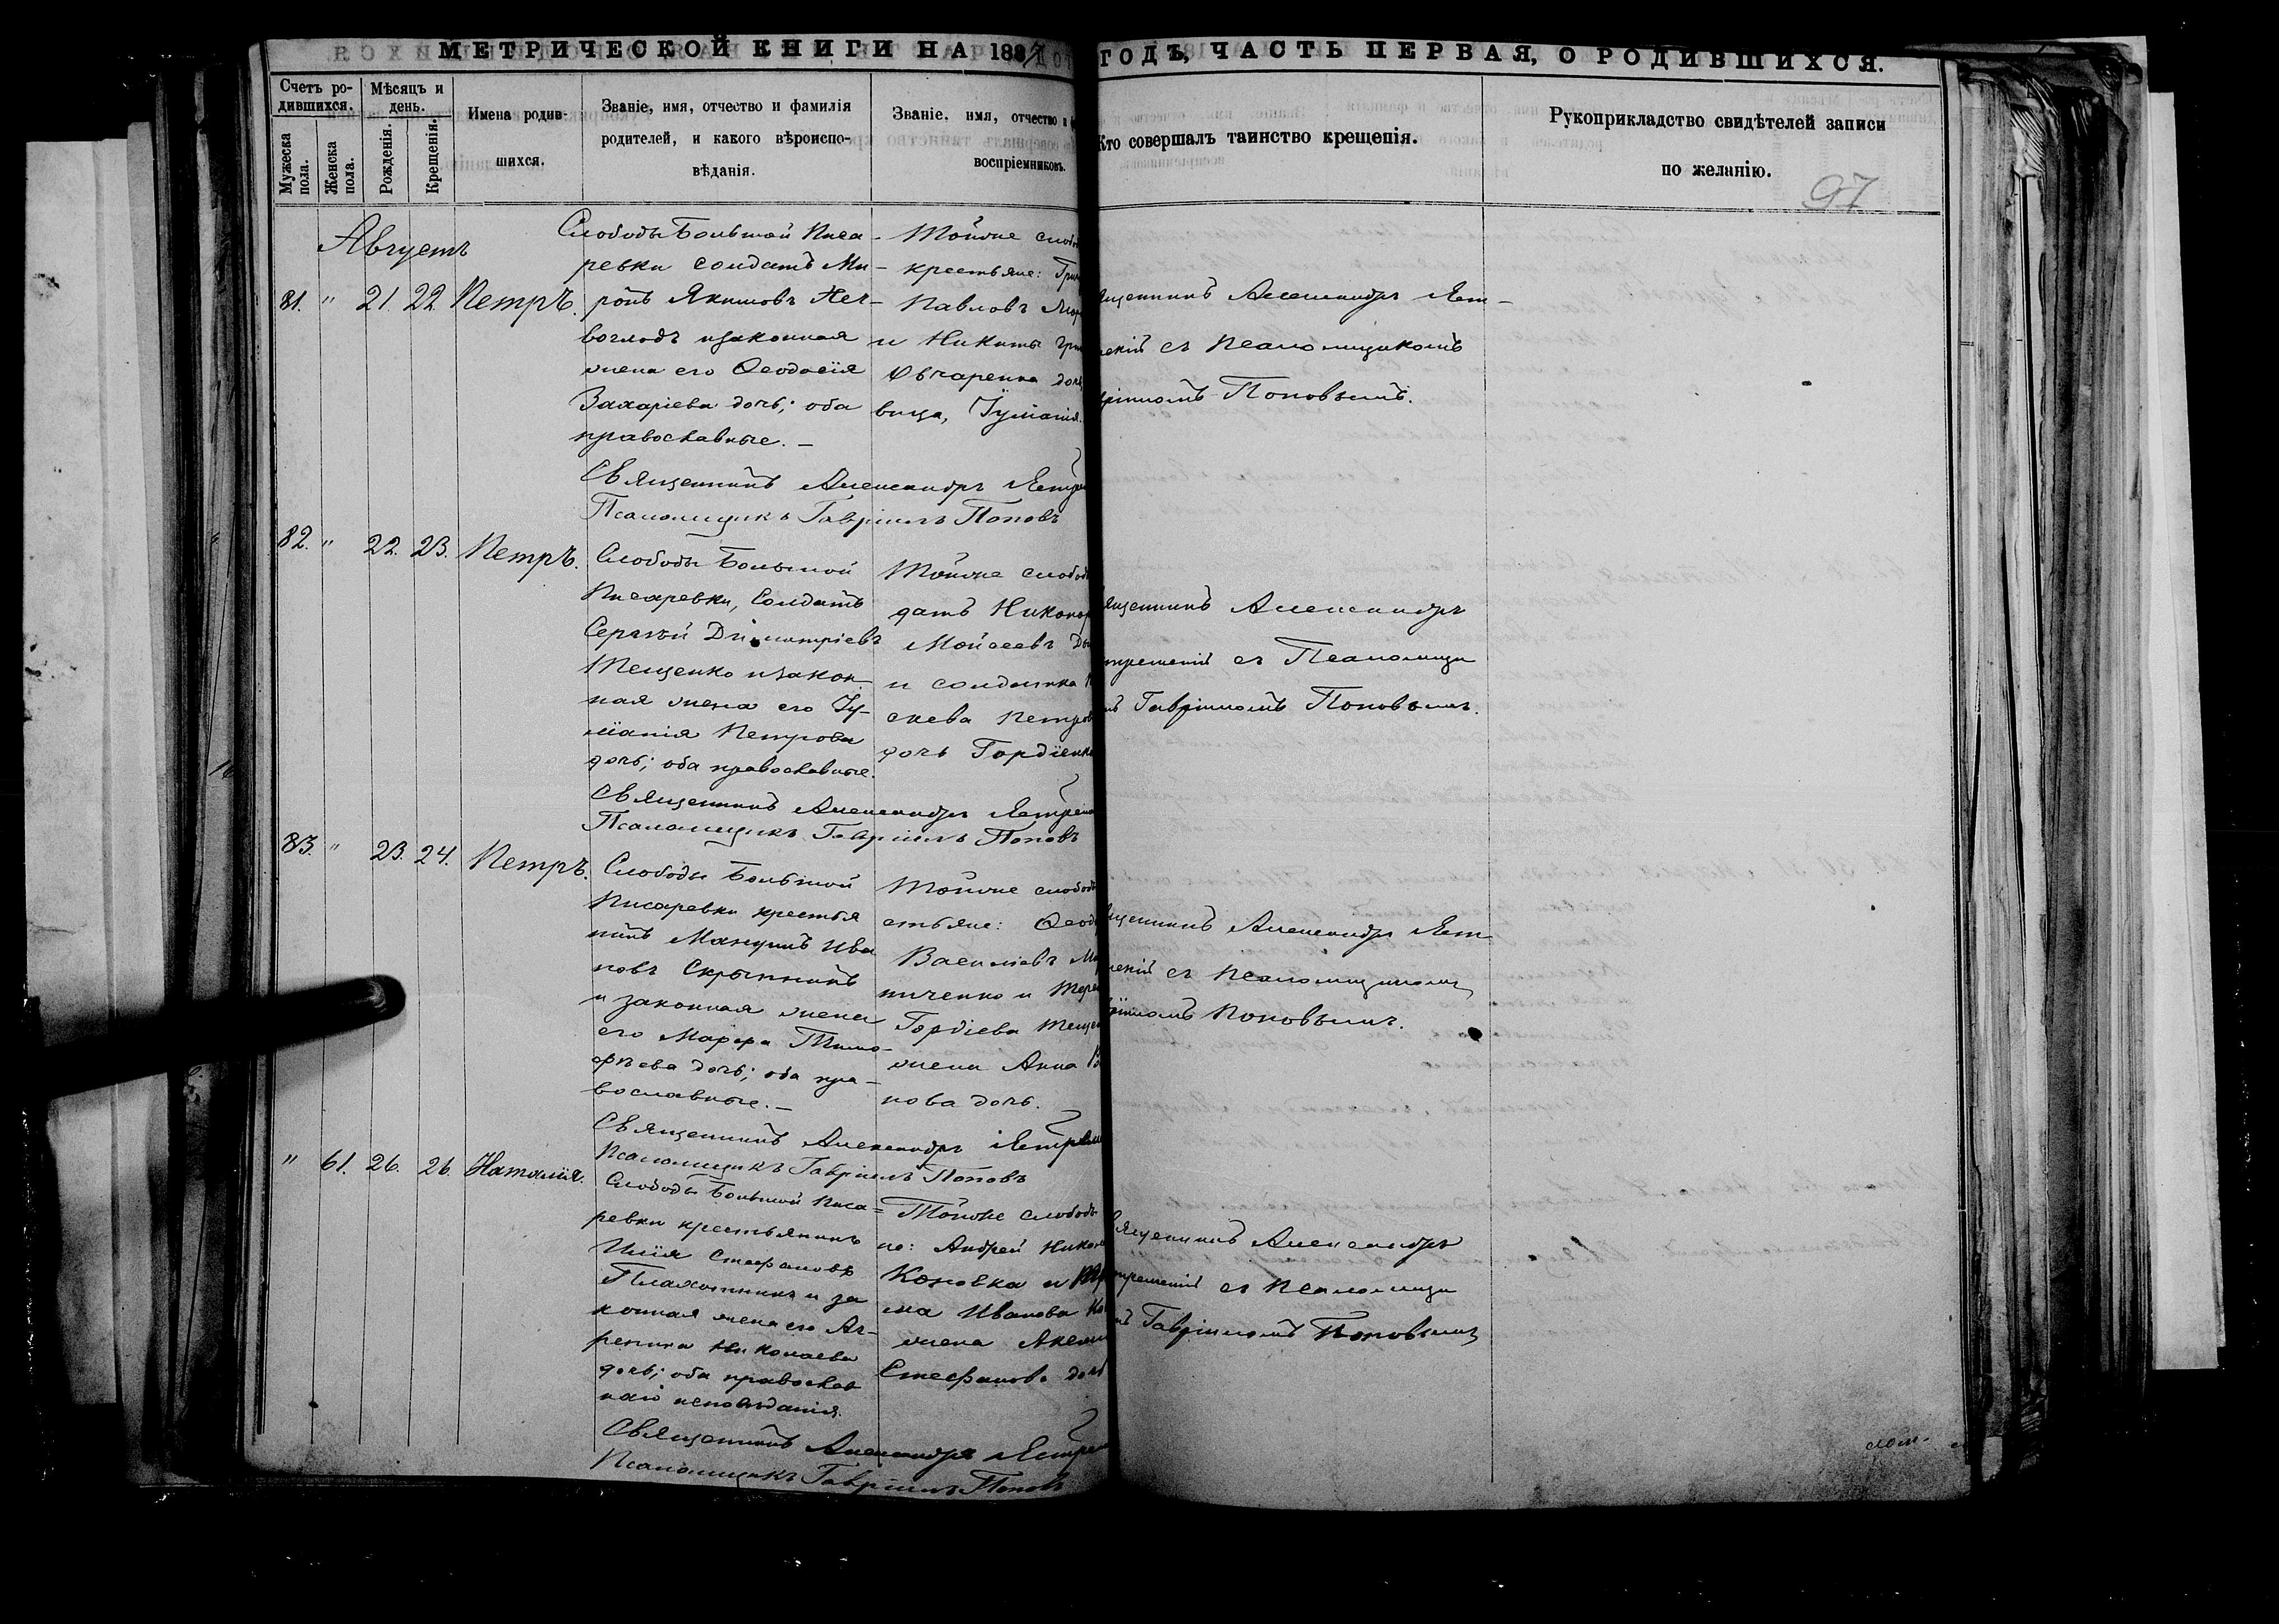 МЕТРИЧЕСКОЙ КНИГИ НА 1887
ГОДЪ, ЧАСТЬ ПЕРВАЯ, О РОДИВШИХСЯ.
Счетъ ро-
дившихся.
Мужеска
пола.
Женска
пола.
Мѣсяцъ и
день.
Рожденія.
Крещенія.
Имена родив-
шихся.
Званіе, имя, отчество и фамилія
родителей, и какого вѣроиспо-
вѣданія.
Званіе, имя, отчество и
воспріемниковъ.
Кто совершалъ таинство крещенія.
Рукоприкладство свидѣтелей записи
по желанію.
97
Августъ
81. " 21. 22. Петръ.
Слободы Большой Писа-
ревки солдатъ Ми-
ронъ Якимовъ
и законная
жена его Ѳеодосія
Захаріева дочь; оба
православные. –
Тойже слобо
крестьяне:
Павловъ
и Никиты
Овчаренка доч
вица,
Александръ Яст-
скій съ Псаломщикомъ
Поповымъ.
Священникъ Александръ Ястре
Псаломщикъ Гавріилъ Поповъ
82. " 22. 23. Петръ.
Слободы Большой
Писаревки, Солдатъ
Сергѣй Димитріевъ
Тещенко и закон-
ная жена его Іу-
ліанія Петрова
дочь; оба православные.
Тойже слобод
датъ Никонор
Моисеевъ
и солдатка
Петров
дочь Гордіенко
Александръ
съ Псаломщи
Гавріиломъ Поповымъ.
Священникъ Александръ Ястре
Псаломщикъ Гавріилъ Поповъ
83. " 23. 24. Петръ.
Слободы Большой
Писаревки крестья
нинъ Мануилъ Ива
новъ Скрынникъ
и законная жена
его Марфа Тимо-
фѣева дочь; оба пра-
вославные. –
Тойже слобод
стьяне: Ѳеод
Василіевъ
ниченко и
Гордіева Теще
жена Анна
нова дочь.
Александръ Яст-
скій съ Псаломщикомъ
Поповымъ.
Священникъ Александръ Ястре
Псаломщикъ Гавріилъ Поповъ
" 61. 26. 26. Наталія.
Слободы Большой Писа-
ревки крестьянинъ
Илія Стефановъ
Плахотникъ и за
конная жена его Аг-
рипина Николаева
дочь; оба православ
наго исповѣданія.
Тойже слобод
не: Андрей Никол
Коновка и
Иванова
жена
Стефанова доч
Александръ
съ Псаломщи
Гавріиломъ Поповымъ
Священникъ Александръ Ястре
Псаломщикъ Гавріилъ Поповъ